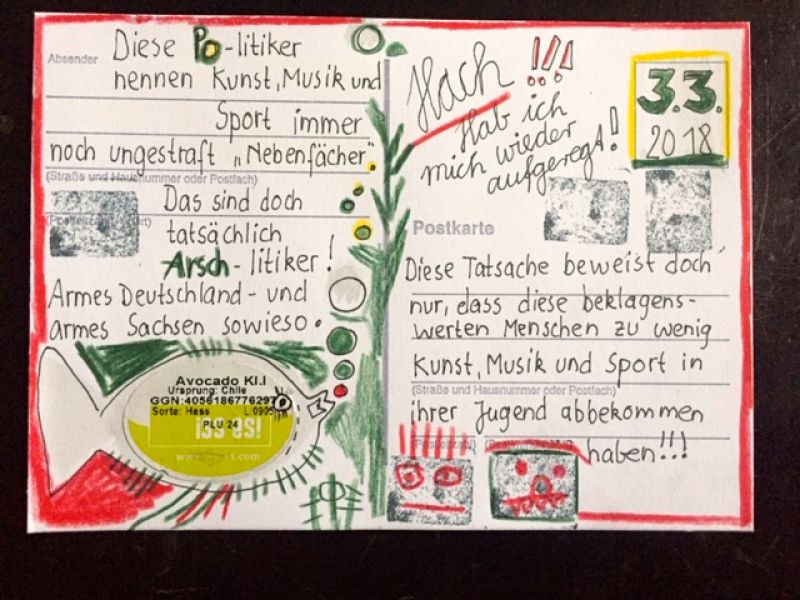 Absender
Diese Po-litiker
nennen Kunst, Musik und
Sport immer
noch ungestraft „Nebenfächer".
(Straße und Hausnummer oder Postfach)
Das sind doch
tatsächlich
Arsch-litiker!
Armes Deutschland - und
armes Sachsen sowieso.
Avocado Kl.I
Ursprung: Chile
GGN:4056186776297
Sorte: Hass
PLU 24
iss es!
Hach!!!
Hab ich
mich wieder
aufgeregt!
3.3.
2018
Postkarte
Diese Tatsache beweist doch
nur, dass diese beklagens-
werten Menschen zu wenig
Kunst, Musik und Sport in
(Straße und Hausnummer oder Postfach)
ihrer Jugend abbekommen
haben!!!